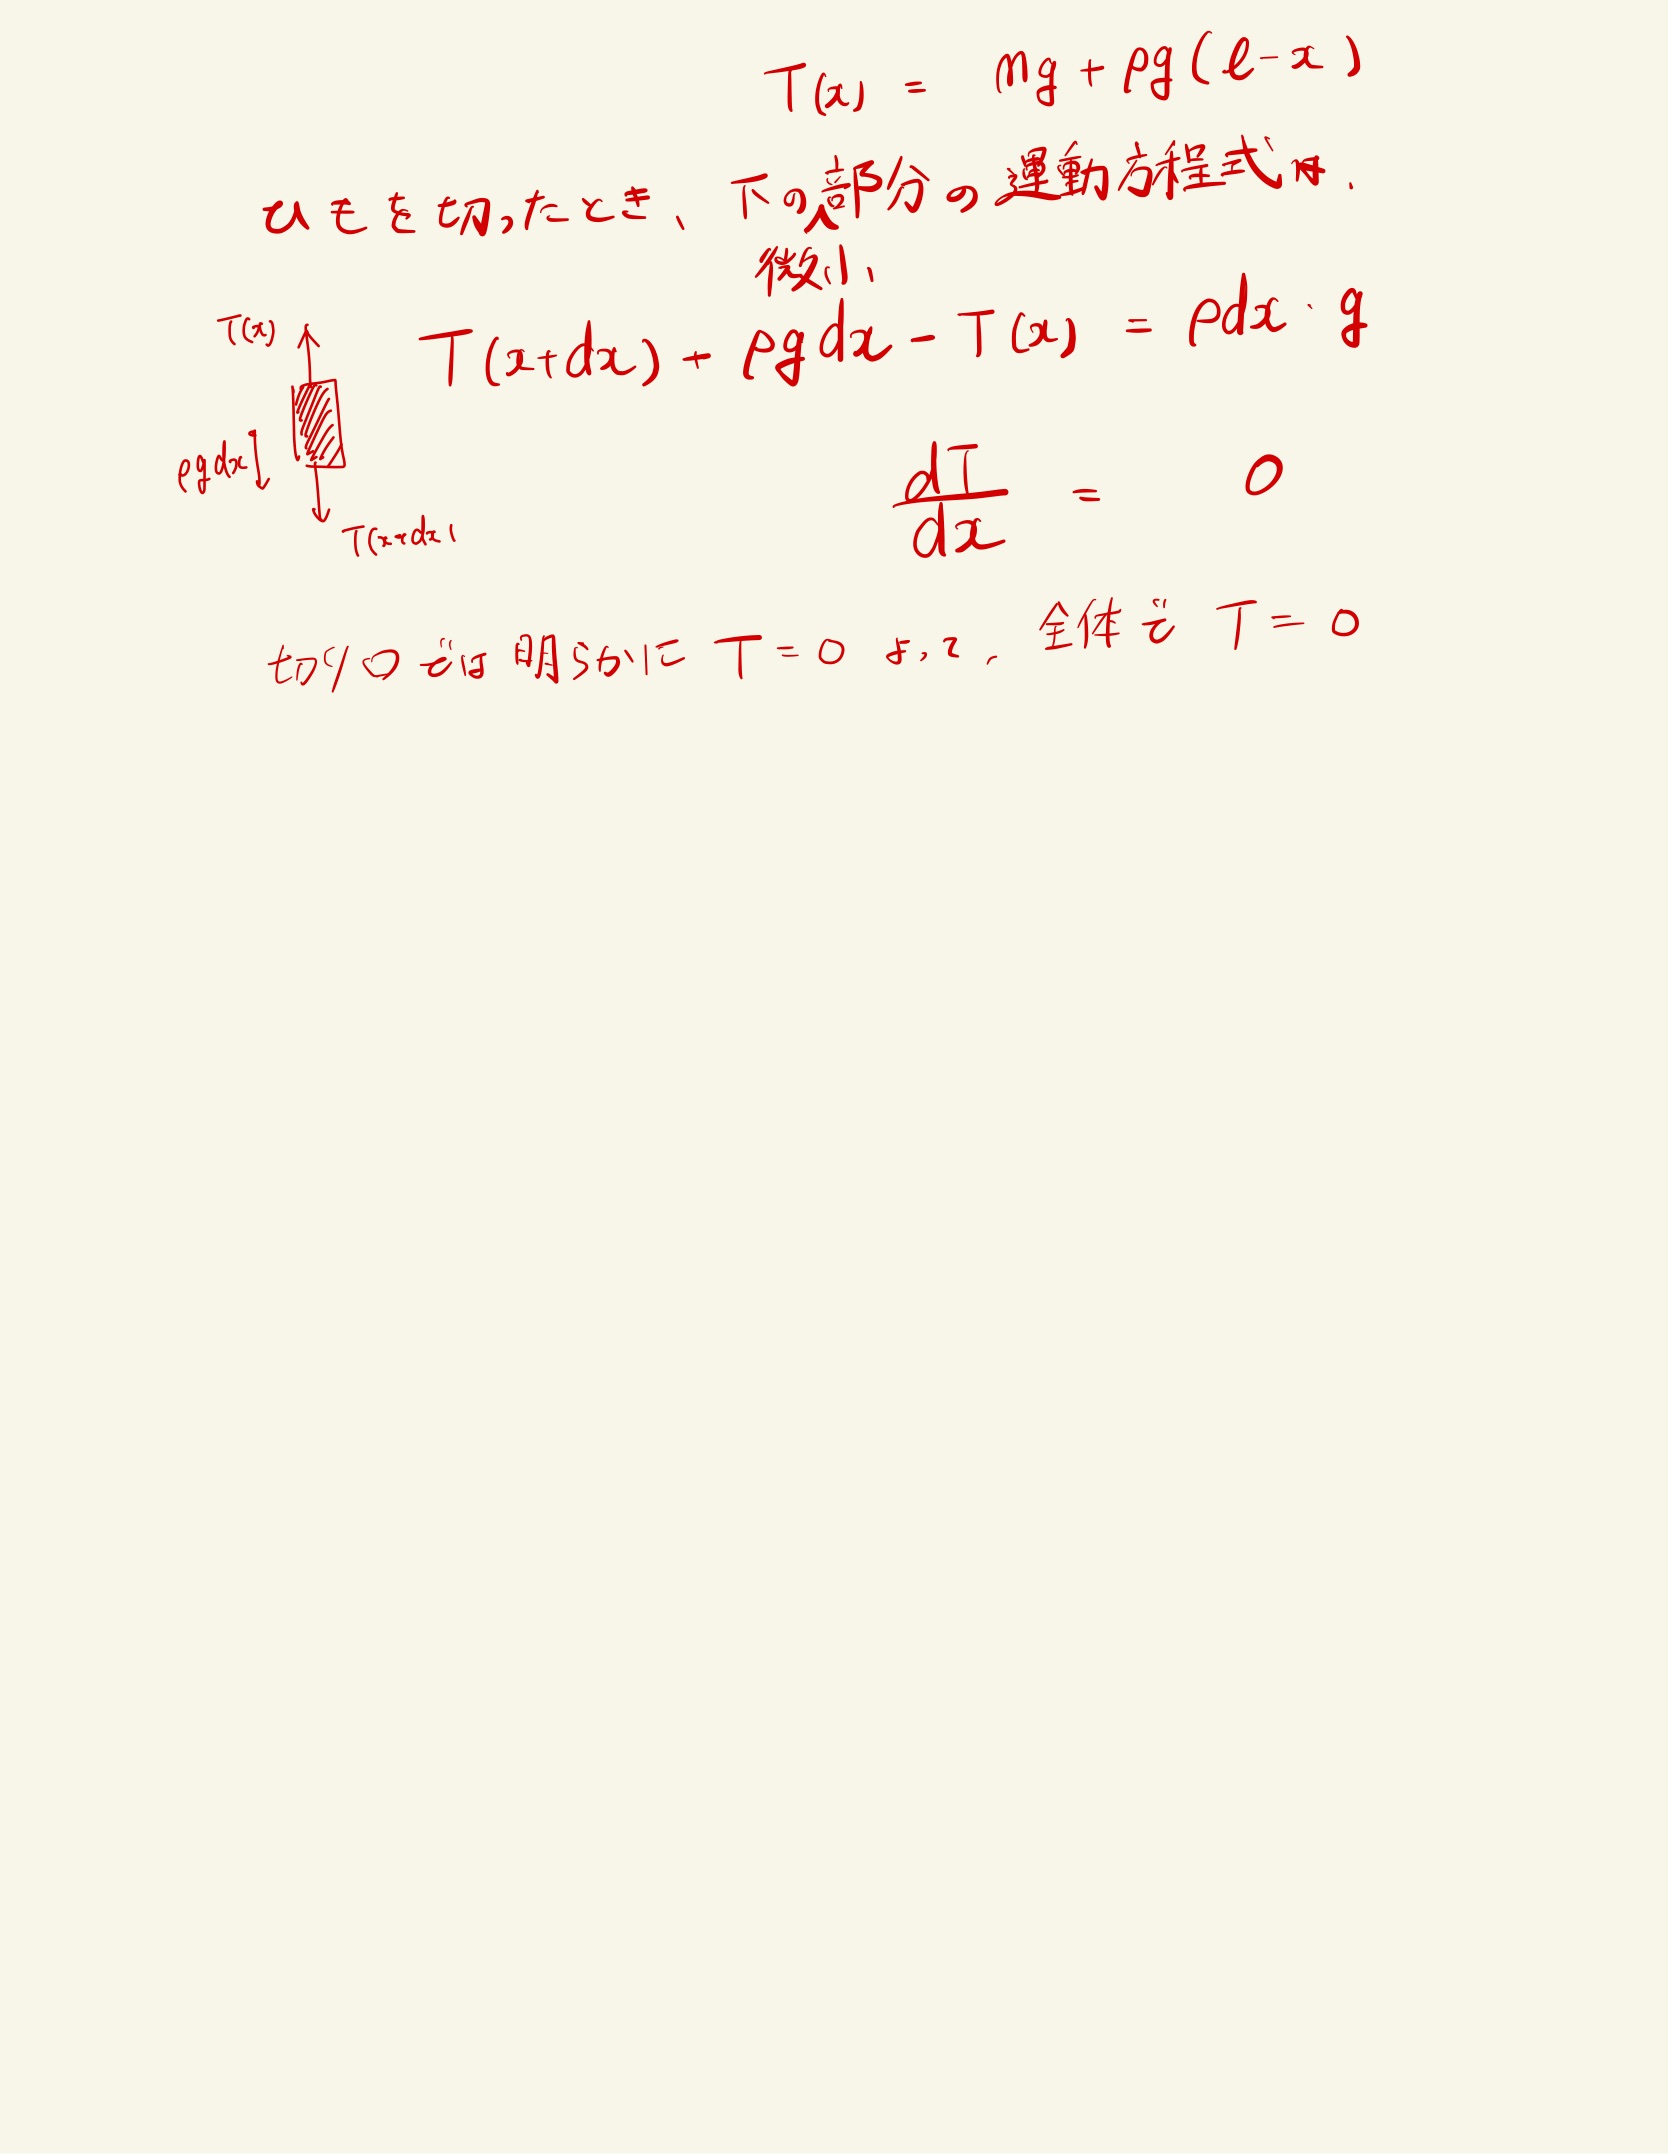 T(x) = mg + ρg(ℓ-x)
ひもを切ったとき、下の微小部分の運動方程式は、
T(x)
T(x+dx) + ρgdx - T(x) = ρdx・g
ρgdx
T(x+dx)
dT/dx = 0
切り口では明らかに T=0 よって、全体で T=0